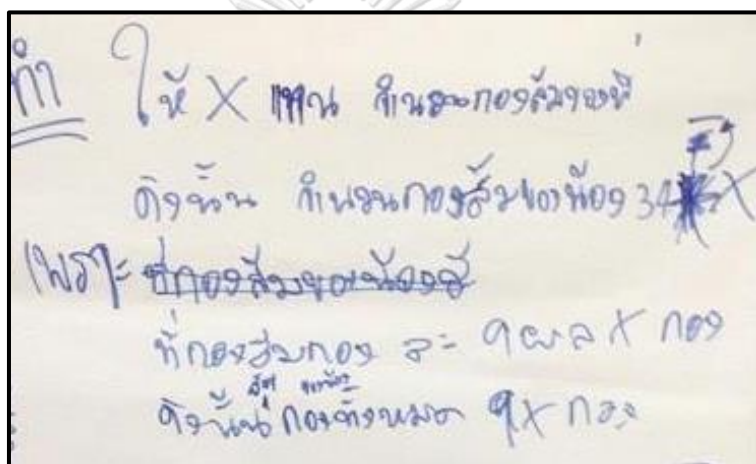 ทำ ให้ X แทน จำนวนกองส้มของพี่
ดังนั้น จำนวนกองส้มของน้อง 34 - X
เพราะ ที่กองส้มของน้องมี
ที่กองส้มกอง ละ 9 ผล X กอง
ดังนั้น ส้ม ของน้อง กองทั้งหมด 9X กอง